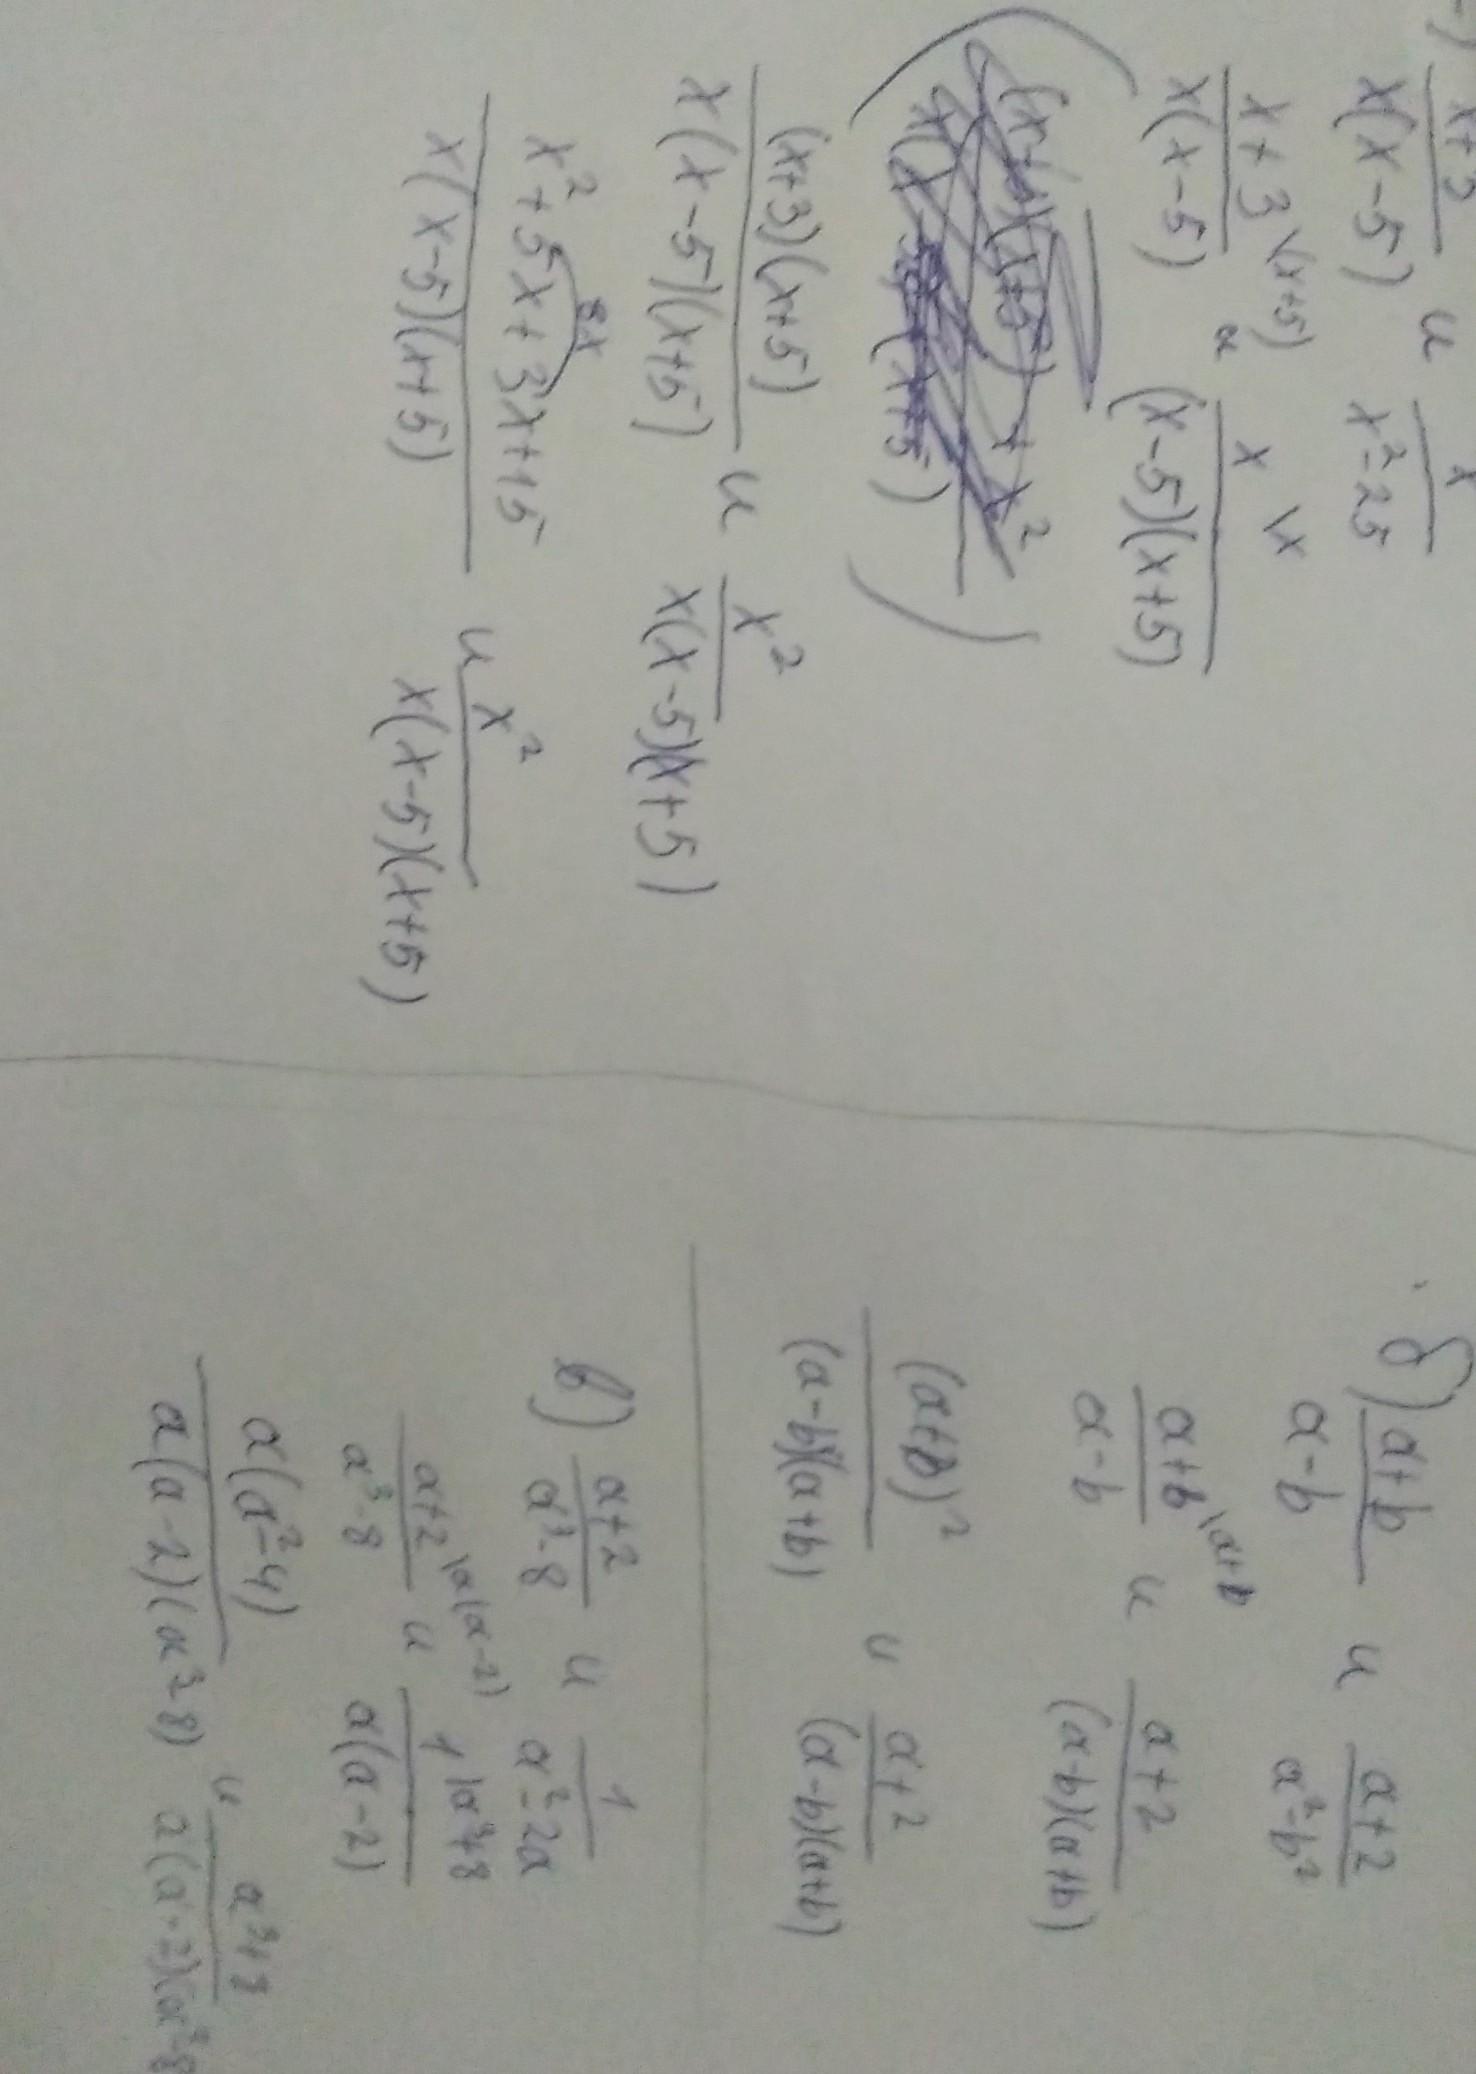 x+3/x(x-5) и x/x²-25
x+3\(x+5)/x(x-5) и x\x/(x-5)(x+5)
(x+3)(x+5)/x(x-5)(x+5) и x²/x(x-5)(x+5)
x²+5x+3x+15/x(x-5)(x+5) и x²/x(x-5)(x+5)
8x
б) a+b/a-b и a+2/a²-b²
a+b\a+b/a-b и a+2/(a-b)(a+b)
(a+b)²/(a-b)(a+b) и a+2/(a-b)(a+b)
в) a+2/a³-8 и 1/a²-2a
a+2\a(a-2)/a³-8 и 1\a³+8/a(a-2)
a(a²-4)/a(a-2)(a³-8) и a³+8/a(a-2)(a³-8